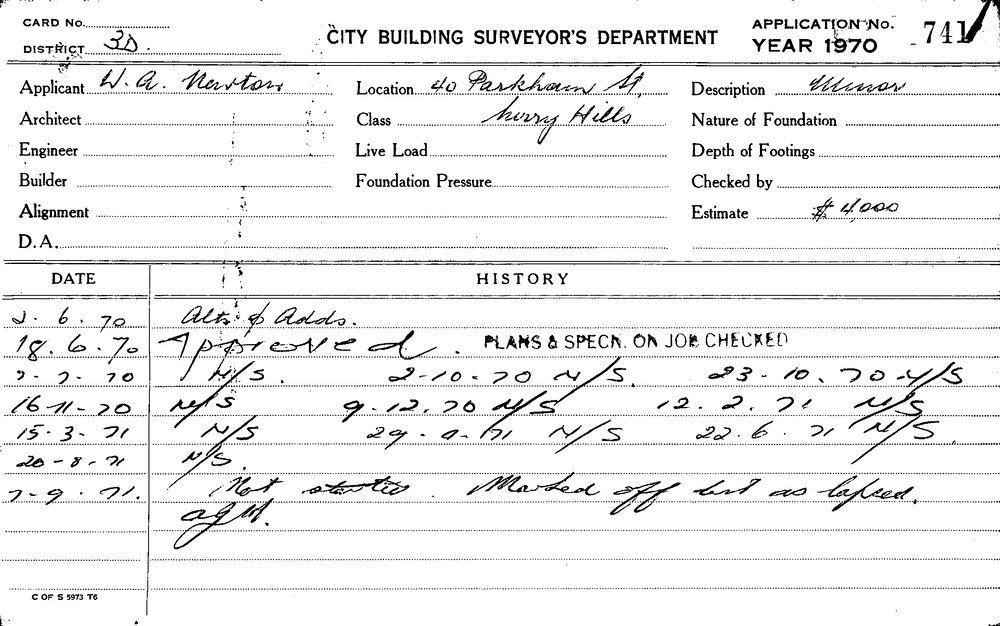 CARD No.
DISTRICT 3D.
CITY BUILDING SURVEYOR'S DEPARTMENT
APPLICATION No. 741
YEAR 1970
Applicant W. A. Newton Location 40 Parkham St, Description Minor
Architect Class Surry Hills Nature of Foundation
Engineer Live Load Depth of Footings
Builder Foundation Pressure Checked by
Alignment Estimate $ 4,000
D.A.
DATE HISTORY
2. 6. 70 Alts & Adds.
18. 6. 70 Approved. PLANS & SPECN. ON JOB CHECKED
7-7-70 N/S. 2-10-70 N/S. 23-10.70 N/S
16-11-70 N/S 9.12.70 N/S 12.2.71 N/S
15-3-71 N/S 71 N/S 22.6.71 N/S.
20-8-71 N/S.
7-9.71. Not started. Marked off list as lapsed.
C OF S 5973 T6